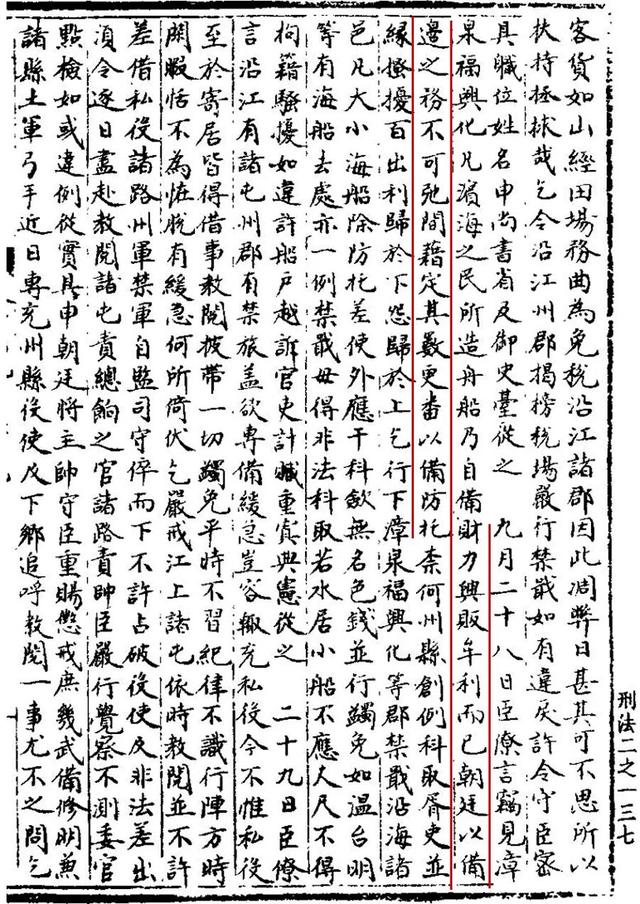 客貨如山經田場務曲為免稅沿江諸郡因此凋弊日甚其可不思所以
扶持拯捄哉乞令沿江州郡揭榜稅場嚴行禁戢如有違戾許令守臣密
具職位姓名申尚書省及御史臺從之　九月二十八日臣僚言竊見漳
泉福興化凡濱海之民所造舟船乃自備財力興販牟利而已朝廷以備
邊之務不可弛間籍定其數更畨以備防托柰何州縣創例科取胥史並
緣搔擾百出利歸於下怨歸於上乞行下漳泉福興化等郡禁戢沿海諸
邑凡大小海船除防托差使外應干科歛無名色錢並行蠲免如溫台明
等有海船去處亦一例禁戢毋得非法科取若水居小船不應丈尺不得
拘籍騷擾如違許船戶越訴官吏計贓重寘典憲從之　二十九日臣僚
言沿江有諸屯州郡有禁旅盖欲專備緩急豈容輙充私役今不惟私役
至於寄居皆得借事教閱披帶一切蠲免平時不習紀律不識行陣方時
閑暇恬不為恠脫有緩急何所倚伏乞嚴戒江上諸屯依時教閱並不許
差借私役諸路州軍禁軍自監司守倅而下不許占破役使及非法差出
須令逐日盡赴教閱諸屯責總餉之官諸路責帥臣嚴行覺察不測委官
點檢如或違例從實具申朝廷將主帥守臣重賜懲戒庶幾武備修明兼
諸縣土軍弓手近日專充州縣役使及下鄉追呼教閱一事尤不之問乞
刑法二之一三七